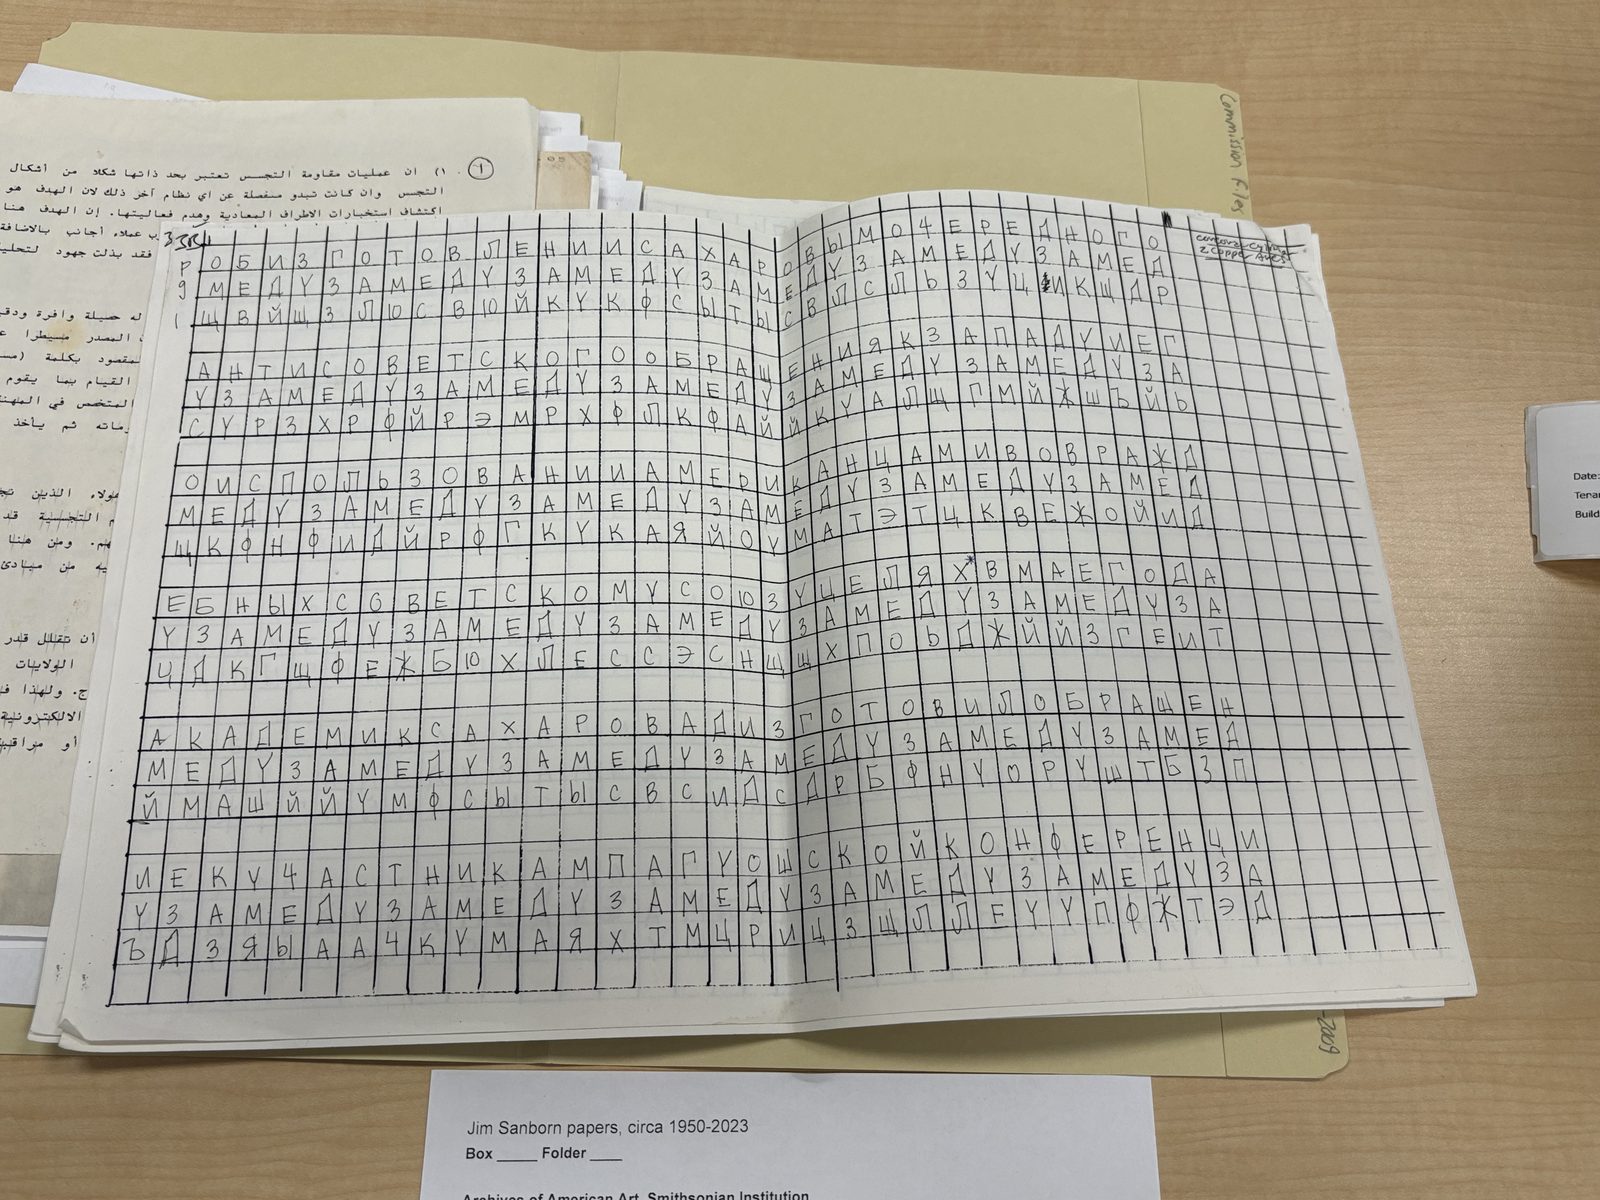 Commission Files
١) ان عمليات مقاومة التجسس تعتبر بحد ذاتها شكلا من أشكال
التجسس وان كانت تبدو منفصلة عن اي نظام آخر ذلك لان الهدف هو
اكتشاف استخبارات الاطراف المعادية وهدم فعاليتها. إن الهدف هنا
عملاء أجانب بالاضافة
فقد بذلت جهود لتحليل
له حصيلة وافرة ودقي
المصدر مسيطرا
المقصود بكلمة
القيام بما يقوم
المتخصص في
ثم يأخذ
الذين
التجسية قد
ومن هنا
من مبادئ
أن تقلل قدر
الولايات
ولهذا
الالكترونية
أو
О Б И З Г О Т О В Л Е Н И И С А Х А Р О В Ы М О Ч Е Р Е Д Н О Г О
М Е Д У З А М Е Д У З А М Е Д У З А М Е Д У З А М Е Д У З А М Е Д
Щ В Й Щ З Л Ю С В Ю Й К У К Ф С Ы Т Ы С В Л С Л Ь З У Ц И К Щ Д Р
2 Copper
А Н Т И С О В Е Т С К О Г О О Б Р А Щ Е Н И Я К З А П А Д У И Е Г
У З А М Е Д У З А М Е Д У З А М Е Д У З А М Е Д У З А М Е Д У З А
С У Р З Х Р Ф Й Р Э М Р Х Ф Л К Ф А Й Й К У А Л Щ Г М Й Ж Ш Ъ Й Ь
О И С П О Л Ь З О В А Н И И А М Е Р И К А Н Ц А М И В О В Р А Ж Д
М Е Д У З А М Е Д У З А М Е Д У З А М Е Д У З А М Е Д У З А М Е Д
Щ К Ф Н Ф И Д Й Р Ф Г К У К А Я Й О У М А Т Э Т Ц К В Е Ж О Й И Д
Е Б Н Ы Х С О В Е Т С К О М У С О Ю З У Ц Е Л Я Х* В М А Е Г О Д А
У З А М Е Д У З А М Е Д У З А М Е Д У З А М Е Д У З А М Е Д У З А
Ч Д К Г Щ Ф Е Ж Б Ю Х Л Е С С Э С Н Щ Щ Х П О Ь Д Ж Й Й З Г Е И Т
А К А Д Е М И К С А Х А Р О В А Д И З Г О Т О В И Л О Б Р А Щ Е Н
М Е Д У З А М Е Д У З А М Е Д У З А М Е Д У З А М Е Д У З А М Е Д
Й М А Ш Й Й У М Ф С Ы Т Ы С В С И Д С Д Р Б Ф Н У О Р У Ш Т Б З П
И Е К У Ч А С Т Н И К А М П А Г У О Ш С К О Й К О Н Ф Е Р Е Н Ц И
У З А М Е Д У З А М Е Д У З А М Е Д У З А М Е Д У З А М Е Д У З А
Ъ Д З Я Ы А А Ч К У М А Я Х Т М Ц Р И Ц З Щ Л Л Е У У П Ф Ж Т Э Д
-2009
Date:
Jim Sanborn papers, circa 1950-2023
Box _____ Folder ____
Archives of American Art, Smithsonian Institution